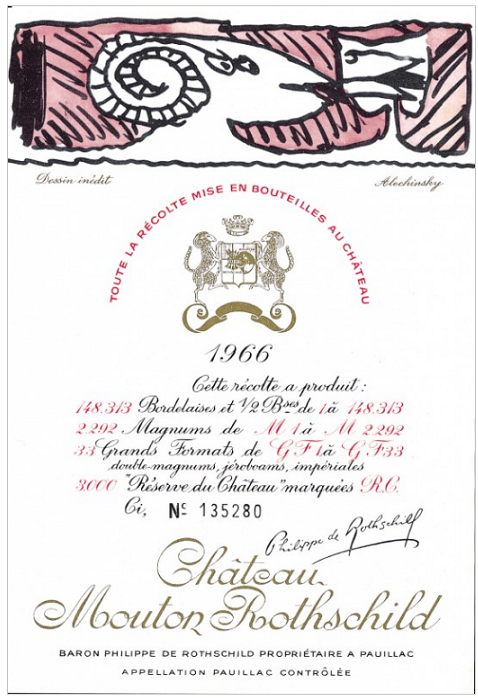 Dessin inédit
Alechinsky
TOUTE LA RÉCOLTE MISE EN BOUTEILLES AU CHÂTEAU
1966
Cette récolte a produit :
148.313 Bordelaises et 1/2 Bses de 1 à 148.313
2.292 Magnums de M 1 à M 2.292
33 Grands Formats de G F 1 à G F 33
double-magnums, jéroboams, impériales
3000 "Réserve du Château" marquées R.C.
Ci, No 135280
Philippe de Rothschild
Château
Mouton Rothschild
BARON PHILIPPE DE ROTHSCHILD PROPRIÉTAIRE A PAUILLAC
APPELLATION PAUILLAC CONTRÔLÉE